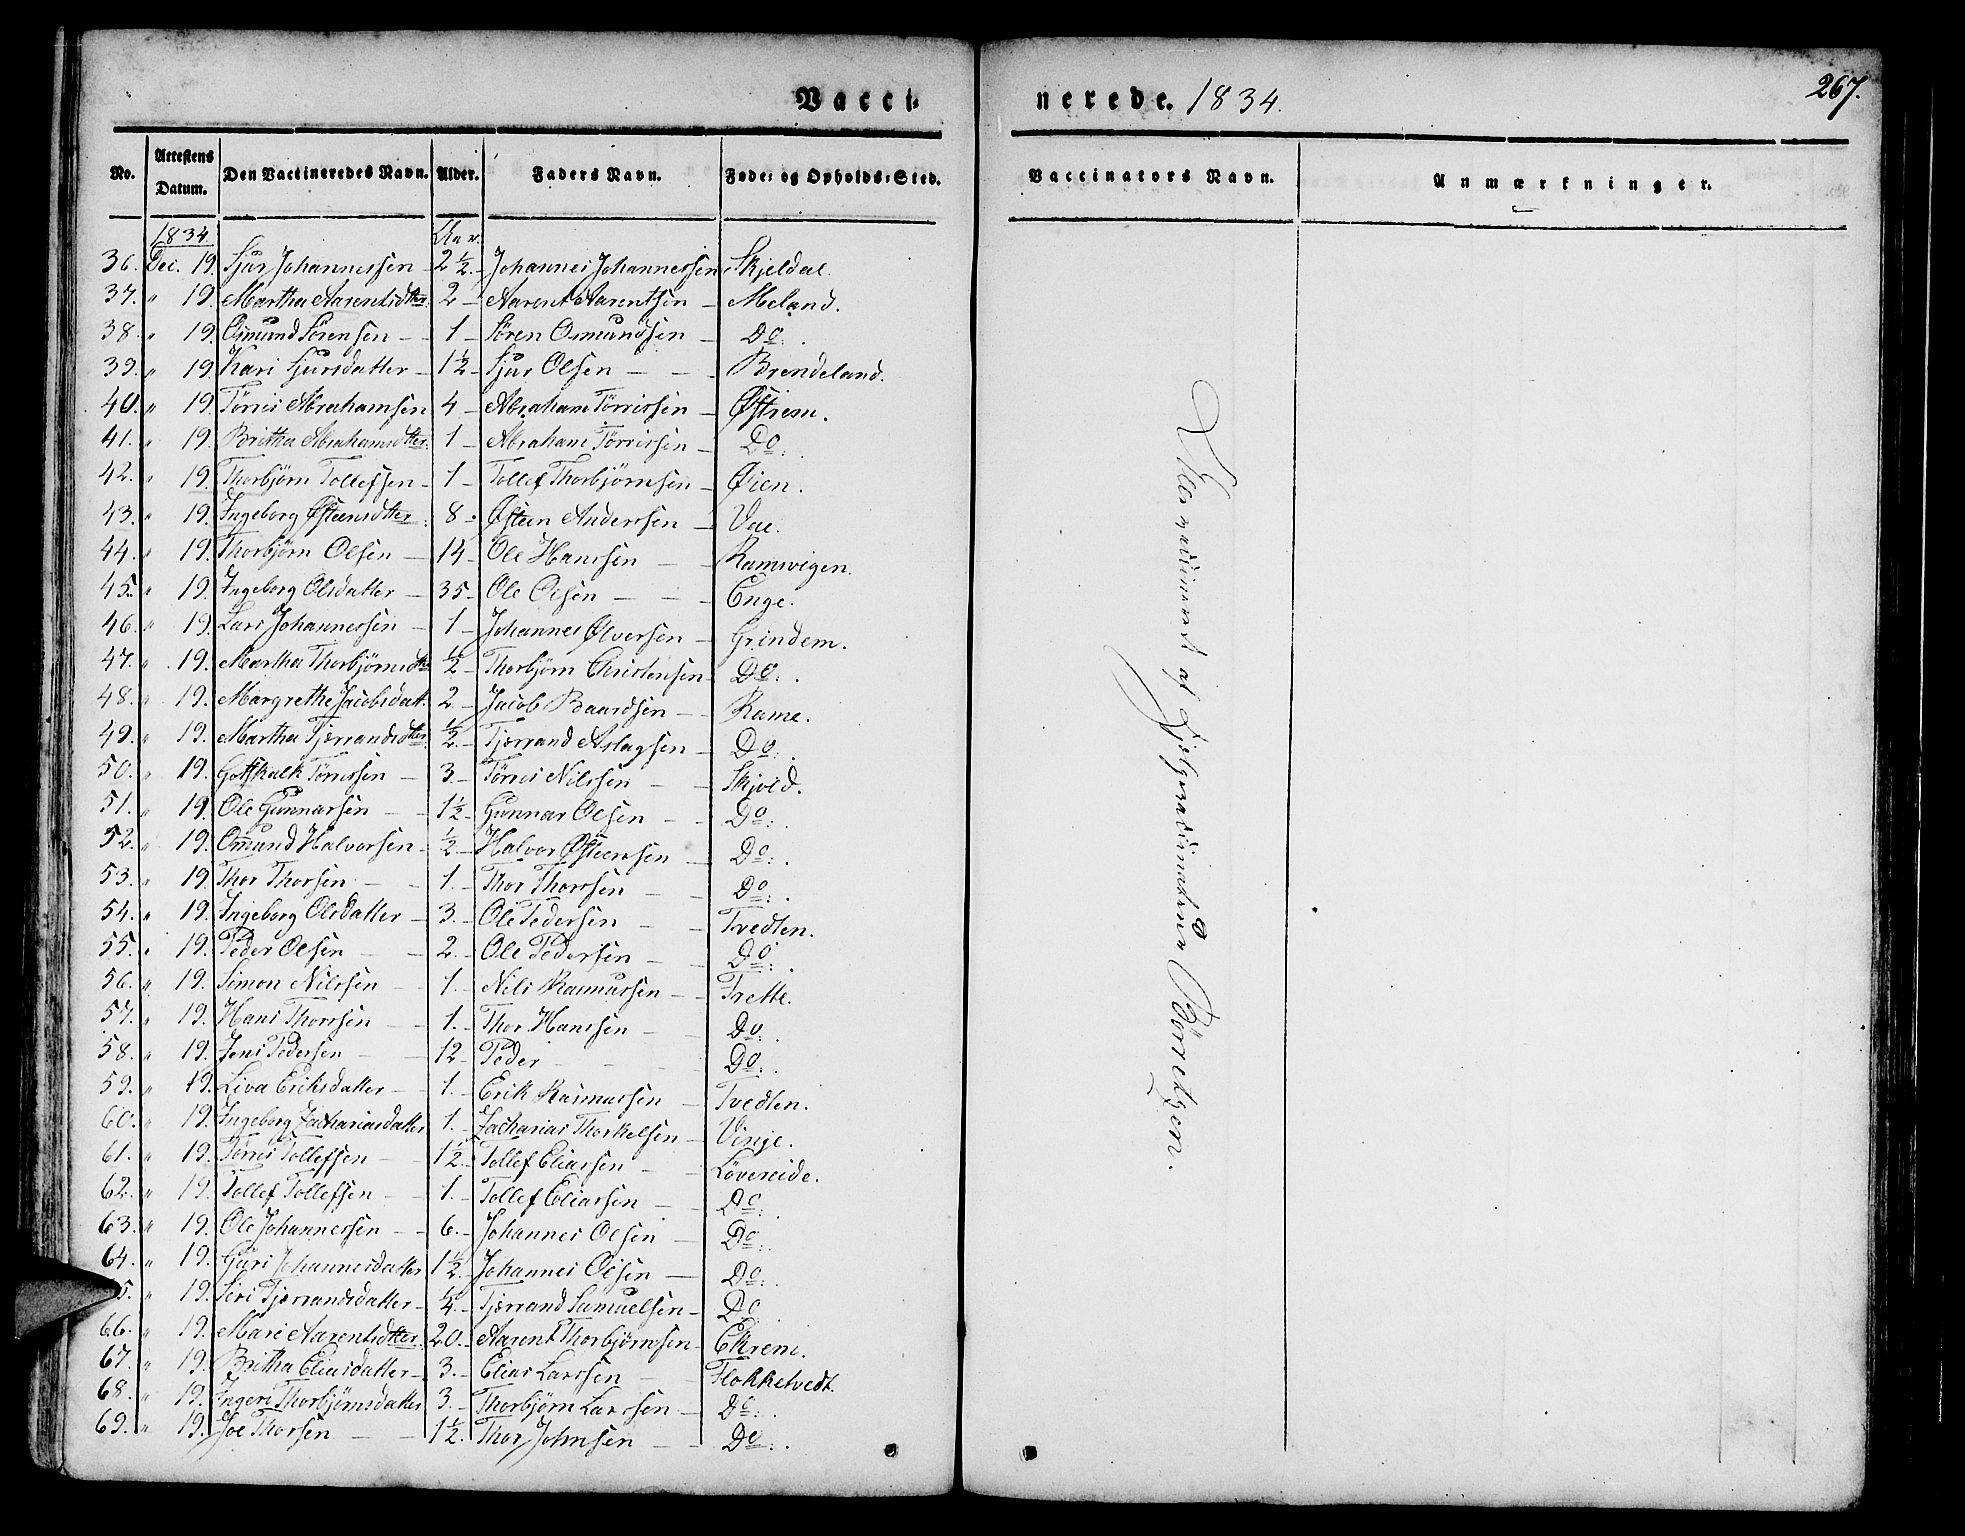 Vacci-
nerede. 1834.
267.
No. Attestens Datum. Den Vaccineredes Navn. Alder. Faders Navn. Føde- og Opholds-Sted.
Vaccinators Navn. Anmærkninger.
1834 Aar.
36. Dec. 19. Sjur Johannessen - 2 1/2. - Johannes Johannessen Skjeldal.
37. " 19. Martha Aarentsdtter. 2 - Aarent Aarentsen - Meland.
38. " 19. Osmund Sörensen - 1 - Sören Osmundsen - Do.
39. " 19. Kari Sjursdatter - 1 1/2 - Sjur Olsen - - Brendeland.
40. " 19. Törris Abrahamsen 4 - Abraham Törrissen - Østrem.
41. " 19. Britha Abrahamsdtter. 1 - Abraham Törrissen - Do.
42. " 19. Thorbjörn Tollefsen - 1 - Tollef Thorbjörnsen - Øien.
43. " 19. Ingeborg Østensdtter. 8 - Østen Anderssen - Vae.
44. " 19. Thorbjörn Olsen - 14 - Ole Hanssen - Ramsvigen.
45. " 19. Ingeborg Olsdatter - 35 - Ole Olsen - - - Enge.
46. " 19. Lars Johannessen - 1 - Johannes Ølversen - Grindem.
47. " 19. Martha Thorbjörnsdtr 1/2 - Thorbjörn Christensen - Do.
48. " 19. Margrethe Jacobsdatt. 2 - Jacob Baardsen - Rame.
49. " 19. Martha Tjærrandsdtter. 1/2 - Tjærrand Aslagsen - Do.
50. " 19. Gotskalk Törrissen - 3. - Törris Nilssen - Skjold.
51. " 19. Ole Gunnarsen - 1 1/2 - Gunnar Olsen - - Do.
52. " 19. Omund Halvorsen - 1/2 - Halvor Østensen - Do.
53. " 19. Thor Thorsen - - 1. - Thor Thorssen - Do.
54. " 19. Ingeborg Olsdatter - 3. - Ole Pedersen - - Tvedten.
55. " 19. Peder Olsen - - 2. - Ole Pedersen - - Do.
56. " 19. Simon Nilssen - 1. - Nils Rasmussen - Trette.
57. " 19. Hans Thorssen - 1. - Thor Hanssen - Do.
58. " 19. Jens Pedersen - 12 - Peder - - Do.
59. " 19. Liva Eriksdatter - 1. - Erik Rasmussen - Tvedten.
60. " 19. Ingeborg Zachariasdatter 1. - Zacharias Thorkelsen - Vinje.
61. " 19. Törris Tollefsen - 1 1/2. - Tollef Eliassen - Lövereide.
62. " 19. Tollef Tollefsen - 1. - Tollef Eliassen - Do.
63. " 19. Ole Johannessen - 6. - Johannes Olsen - Do.
64. " 19. Guri Johannesdatter 1 1/2. Johannes Olsen - Do.
5. " 19. Siri Tjærrandsdatter - 1/4. - Tjærrand Samuelsen - Do.
66. " 19. Mari Aarentsdtter. 20. - Aarent Thorbjörnsen - Ekrene.
67. " 19. Britha Eliasdatter - 3. - Elias Larssen - Flokketvedt.
68. " 19. Ingeri Thorbjörnsdatter 3. - Thorbjörn Larssen - Do.
69. " 19. Joe Thorsen - - 1 1/2. Thor Johnsen - - Do.
Alle vaccineret af Hjelpevaccinateur Börretzen.